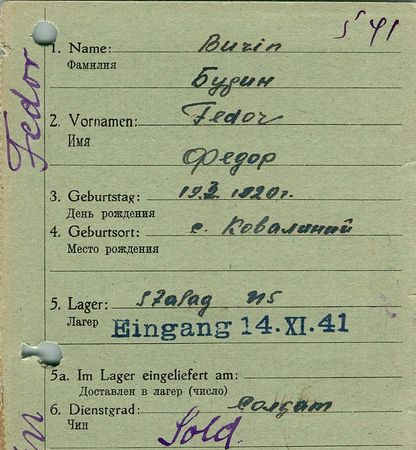 § 41
1. Name: Burin
Фамилия
Бурин
2. Vornamen: Fedor
Имя
Федор
3. Geburtstag: 1920г.
День рождения
4. Geburtsort: с.
Место рождения
5. Lager: Stalag
Лагер
Eingang 14.XI.41
5a. Im Lager eingeliefert am:
Доставлен в лагер (число)
6. Dienstgrad: Солдат
Чин
Sold.
Fedor